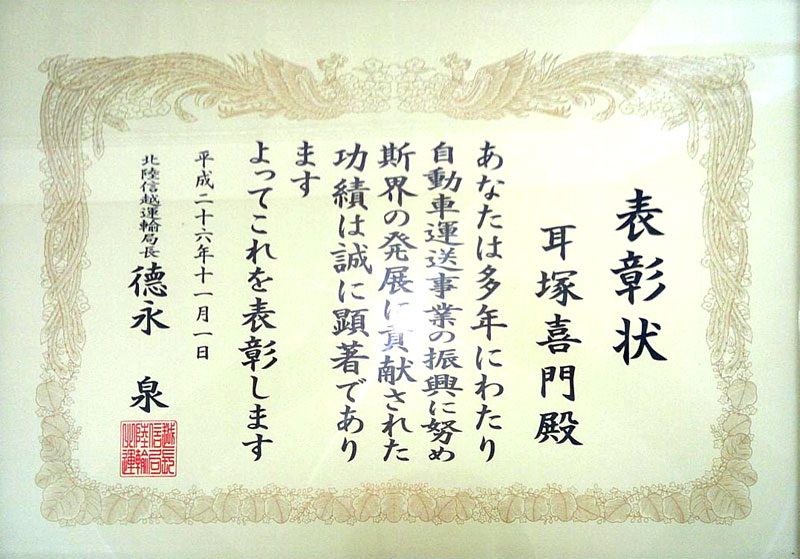 表彰状
耳塚喜門殿
あなたは多年にわたり
自動車運送事業の振興に努め
斯界の発展に貢献された
功績は誠に顕著であり
ます
よってこれを表彰します
平成二十六年十一月一日
北陸信越運輸局長
德永泉
越長
信局
陸輸
北運